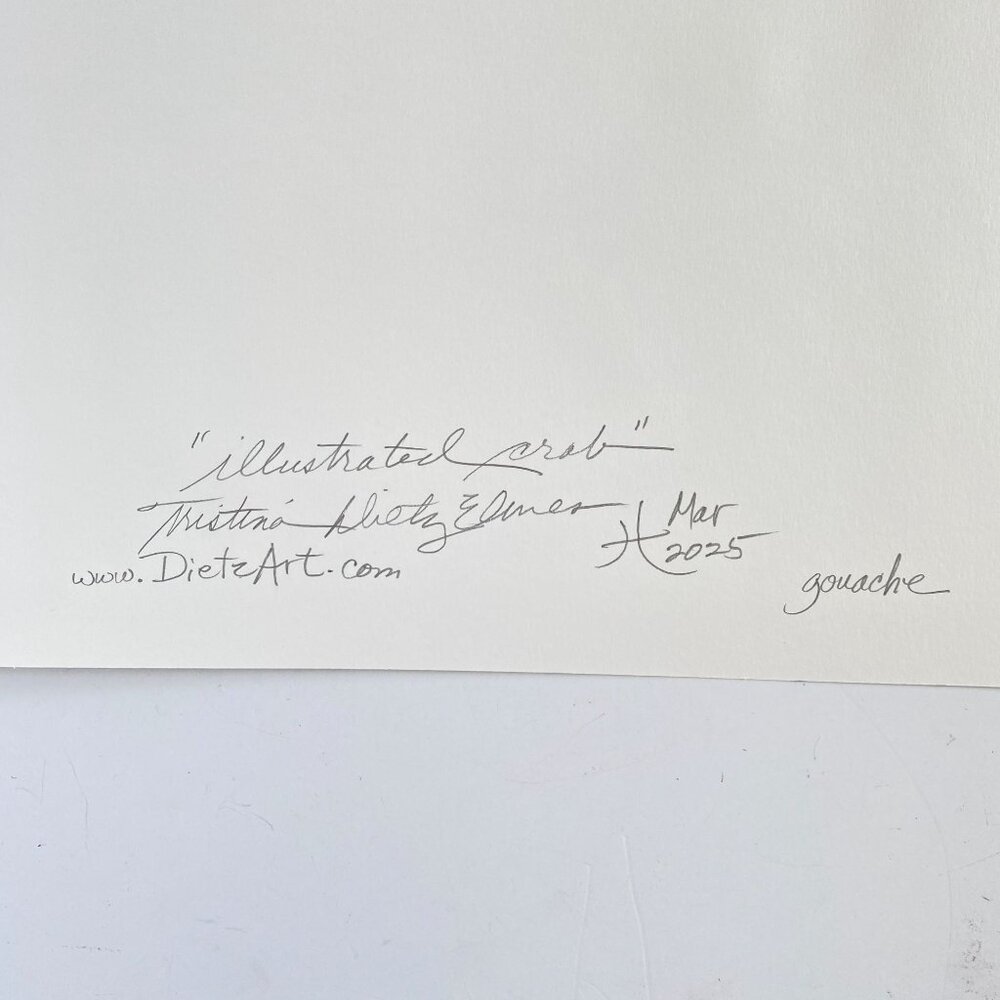 "illustrated crab"
Tristina Dietz Elmes
Mar
2025
www.DietzArt.com
gouache